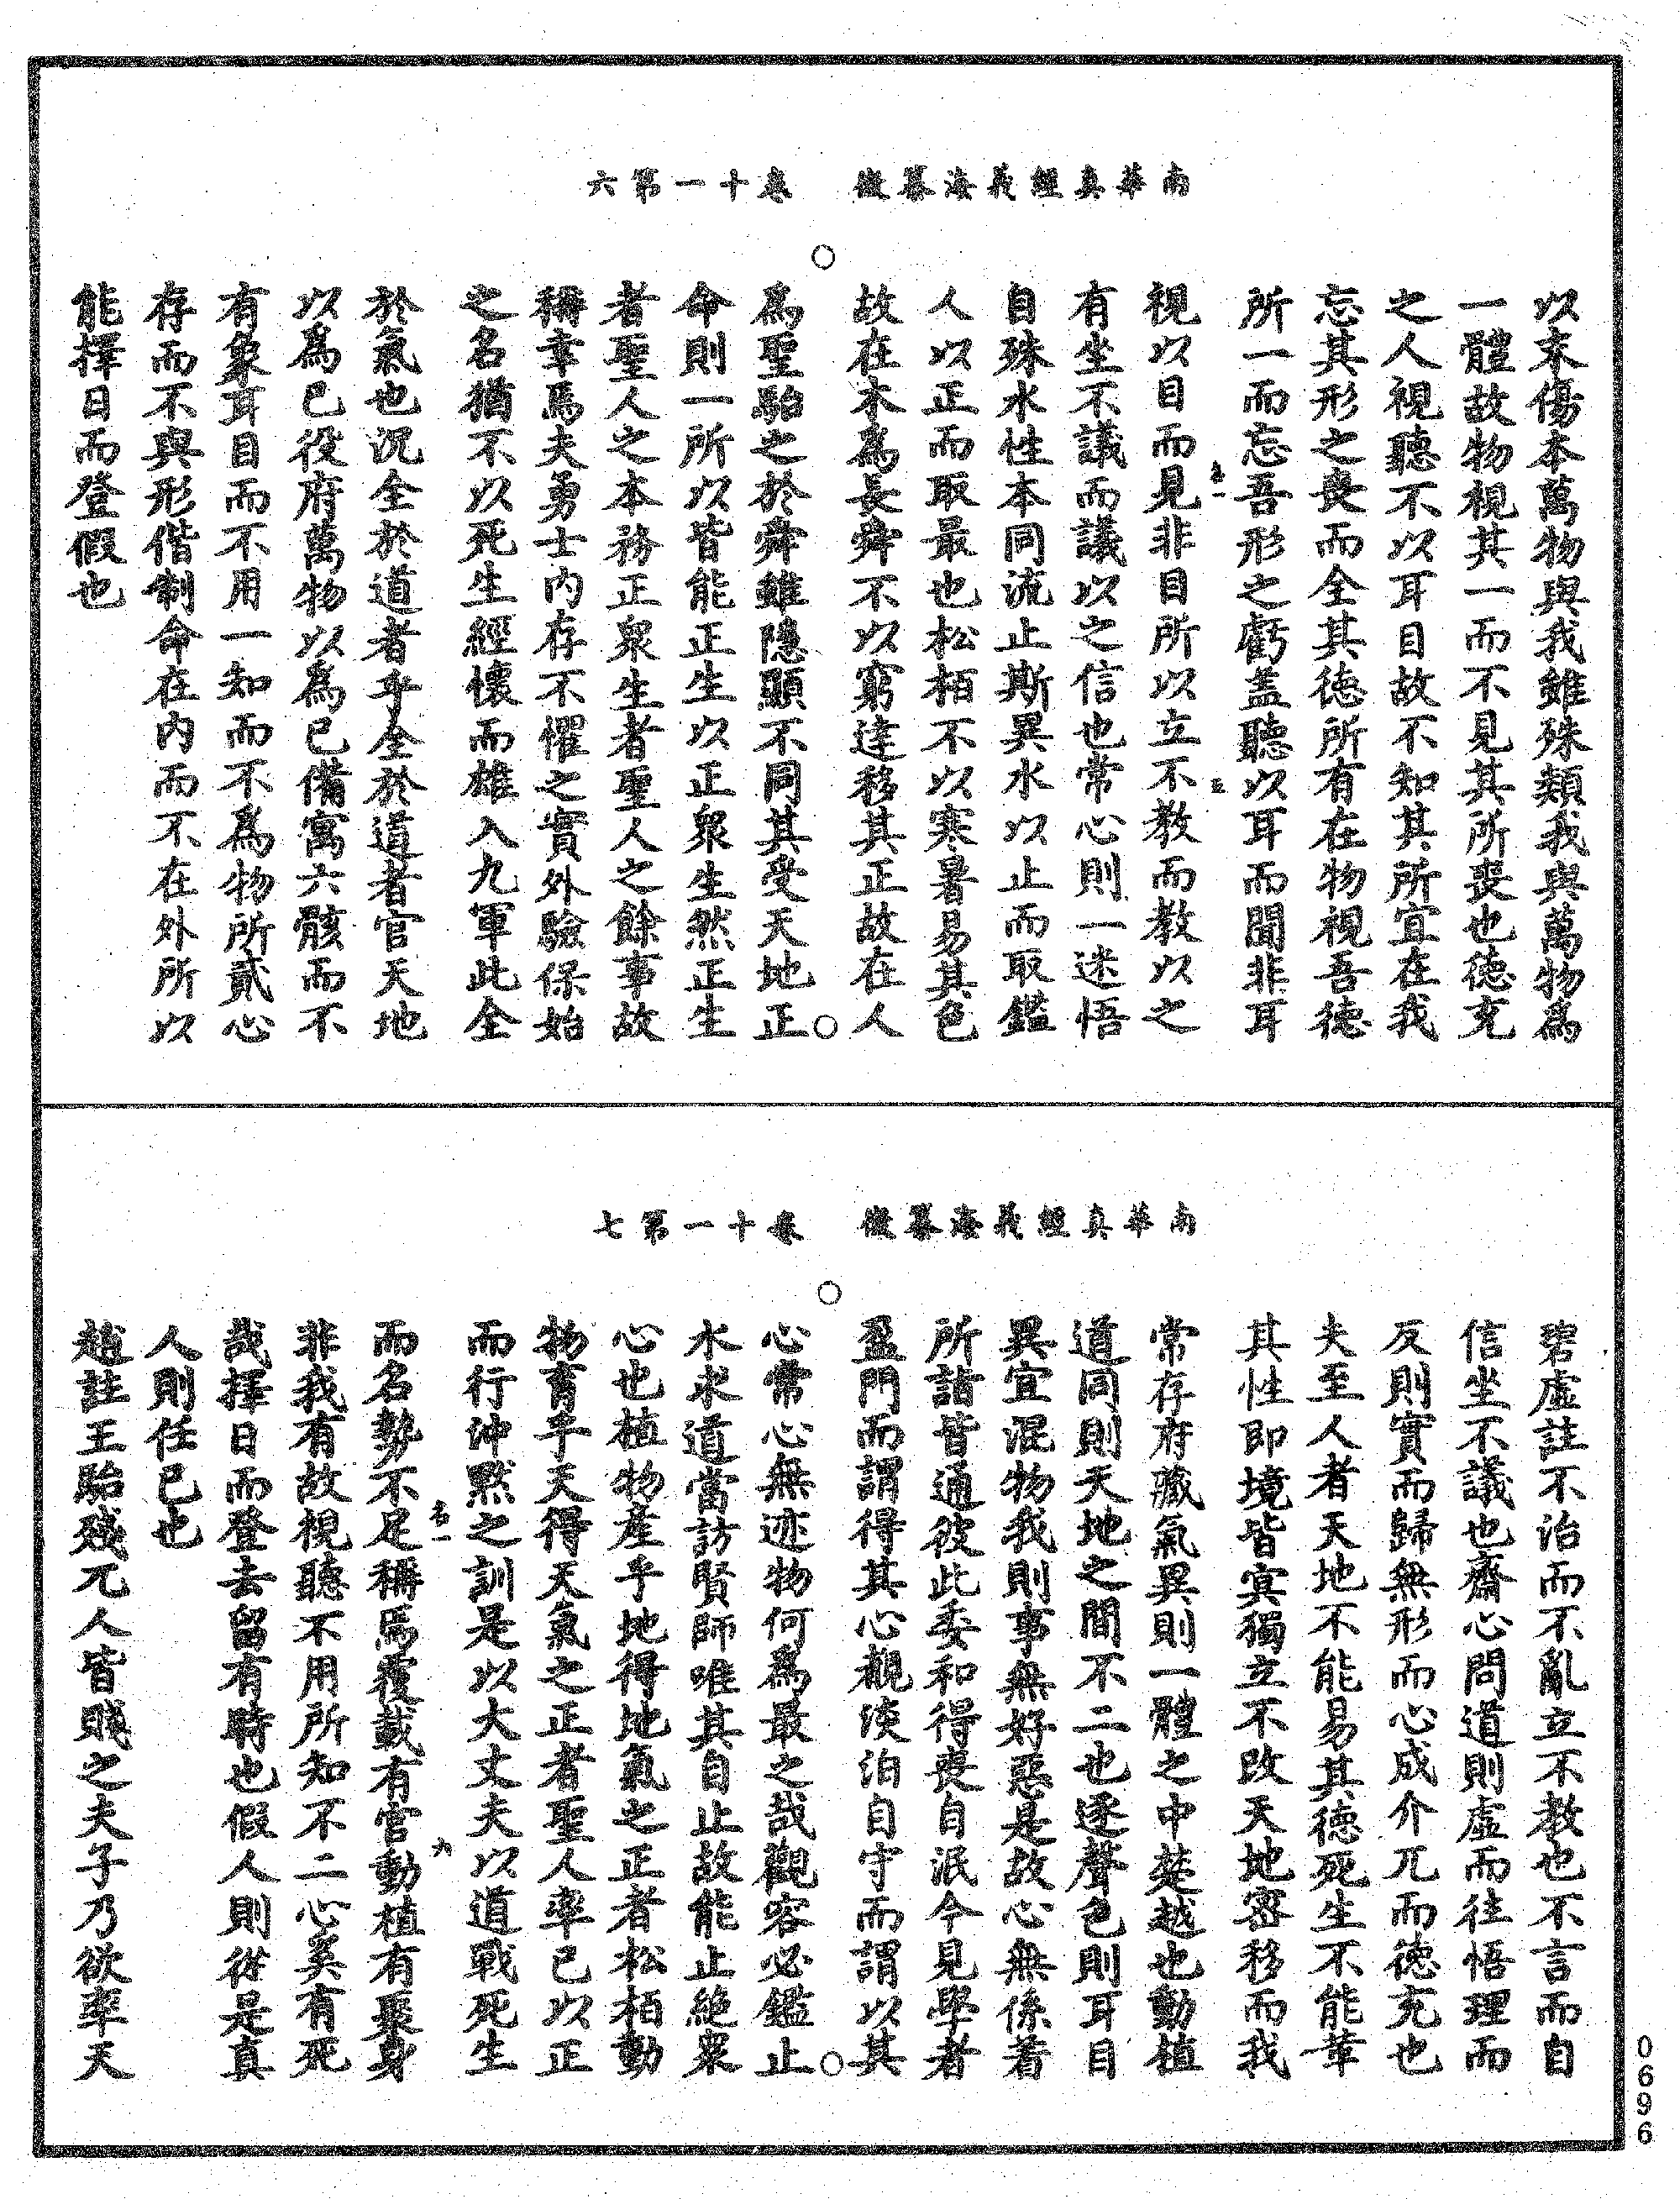 南華真經義海纂微　卷十一第六
以末傷本萬物與我雖殊類我與萬物為
一體故物視其一而不見其所喪也徳充
之人視聽不以耳目故不知其所宜在我
忘其形之喪而全其徳所有在物視吾徳
所一而忘吾形之虧盖聽以耳而聞非耳
視以目而見非目所以立不教而教以之
有坐不議而議以之信也常心則一迷悟
自殊水性本同流止斯異水以止而取鑑
人以正而取最也松栢不以寒暑易其色
故在木為長舜不以窮達移其正故在人
為聖駘之於舜雖隱顯不同其受天地正
命則一所以皆能正生以正衆生然正生
者聖人之本務正衆生者聖人之餘事故
稱幸焉夫勇士内存不懼之實外驗保始
之名猶不以死生經懷而雄入九軍此全
於氣也沉全於道者乎全於道者官天地
以為已役府萬物以為已備寓六骸而不
有象耳目而不用一知而不為物所貳心
存而不與形偕制命在内而不在外所以
能擇日而登假也
南華真經義海纂微　卷十一第七
碧虛註不治而不亂立不教也不言而自
信坐不議也齋心問道則虛而往悟理而
反則實而歸無形而心成介兀而徳充也
夫至人者天地不能易其徳死生不能革
其性即境皆寞獨立不改天地密移而我
常存府藏氣異則一體之中楚越也動植
道同則天地之間不二也逐聲色則耳目
異宜混物我則事無好惡是故心無係着
所詣皆通彼此委和得喪自泯今見學者
盈門而謂得其心觀淡泊自守而謂以其
心常心無迹物何為最之哉觀容必鑑止
水求道當訪賢師唯其自止故能止絶衆
心也植物產乎地得地氣之正者松栢動
物育乎天得天氣之正者聖人率已以正
而行沖黙之訓是以大丈夫以道戰死生
而名勢不足稱焉覆載有官動植有聚身
非我有故視聽不用所知不二心奚有死
哉擇日而登去留有時也假人則從是真
人則任已也
趙註王駘殘兀人皆賤之夫子乃欲率天
0696